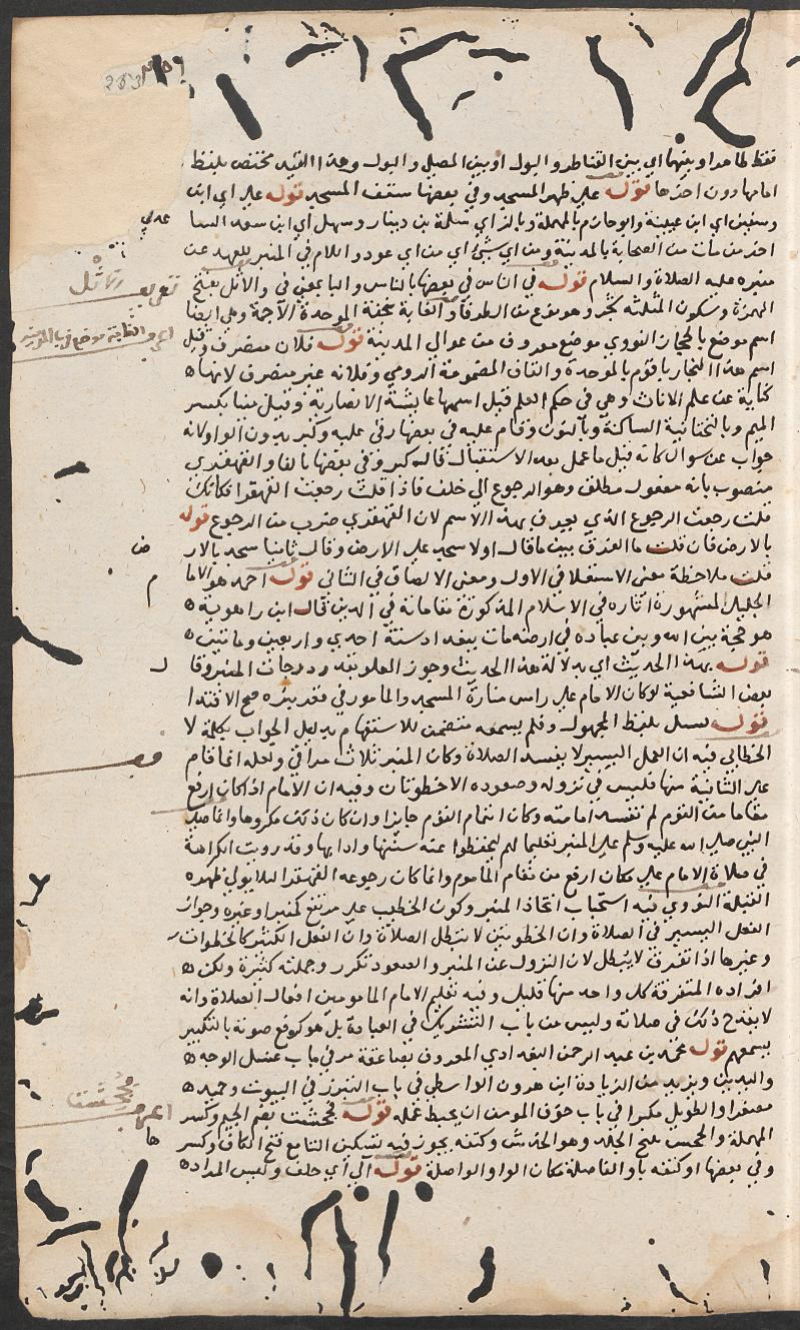 فقط طاهرا وبينها اي بين القناطر والبول او بين المصلي والبول وهذا القيد مختص بلفظ
امامها دون اخواتها قوله علي ظهر المسجد وفي بعضها سقف المسجد قوله علي اي ابن
وسفين اي ابن عيينة وابو حازم بالمهملة وبالزاي سلمة بن دينار وسهل اي ابن سعد الساعدي
اخر من مات من الصحابة بالمدينة ومن اي شئ اي من اي عود واللام في المنبر للعهد عن
منبره عليه الصلاة والسلام قوله في الناس في بعضها بالناس والبا بمعني في والاثل بفتح
الهمزة وسكون المثلثة شجر وهو نوع من الطرفا والغابة بخفة الموحدة الاجمة وهي ايضا
اسم موضع بالحجاز النووي موضع معروف من عوالي المدينة قوله فلان منصرف وقيل
اسم هذا النجار باقوم بالموحدة والقاف المضمومة الرومي وفلانة غير منصرف لانها
كناية عن علم الاناث وهي في حكم العلم قيل اسمها عايشة الانصارية وقيل مينا بكسر
الميم وبالتحتانية الساكنة وبالنون وقام عليه في بعضها رقي عليه وكبر بدون الواو لانه
جواب عن سوال كانه قيل ما عمل بعد الاستقبال قال كبر وفي بعضها بالفا والقهقري
منصوب بانه مفعول مطلق وهو الرجوع الي خلف فاذا قلت رجعت القهقرا فكانك
قلت رجعت الرجوع الذي يعرف بهذا الاسم لان القهقري ضرب من الرجوع قوله
بالارض فان قلت ما الفرق بين ما قال اولا سجد علي الارض وقال ثانيا سجد بالارض
قلت ملاحظة معني الاستعلا في الاول ومعني الالصاق في الثاني قوله احمد هو الامام
الجليل المشهورة اثاره في الاسلام المذكورة مقاماته في الدين قال ابن راهوية
هو حجة بين الله وبين عباده في ارضه مات ببغداد سنة احدي واربعين ومايتين
قوله بهذا الحديث اي بدلالة هذا الحديث وجوز العلو بقدر درجات المنبر وقال
بعض الشافعية لو كان الامام علي راس منارة المسجد والماموم في قعر بئره صح الاقتدا
قوله يسئل بلفظ المجهول وفلم يسمعه متضمن للاستفهام بدليل الجواب بكلمة لا
الخطابي فيه ان العمل اليسير لا يفسد الصلاة وكان المنبر ثلاث مراقي ولعله انما قام
علي الثانية منها فليس في نزوله وصعوده الا خطوتان وفيه ان الامام اذا كان ارفع
مقاما من القوم لم تفسد امامته وكان ائتمام القوم جايزا وان كان ذلك مكروها وانما صلي
النبي صلي الله عليه وسلم علي المنبر تعليما لهم ليحفظوا عنه سننها وادابها وقد رويت الكراهة
في صلاة الامام علي مكان ارفع من مقام الماموم وانما كان رجوعه القهقرا لئلا يولي ظهره
القبلة النووي فيه استحباب اتخاذ المنبر وكون الخطيب علي مرتفع كمنبر او غيره وجواز
الفعل اليسير في الصلاة وان الخطوتين لا تبطل الصلاة وان الفعل الكثير كالخطوات
وغيرها اذا تفرق لا يبطل لان النزول عن المنبر والصعود تكرر وجملته كثيرة ولكن
افراده المتفرقة كل واحد منها قليل وفيه تعليم الامام المامومين افعال الصلاة وانه
لا يقدح ذلك في صلاته وليس من باب التشريك في العبادة بل هو كرفع صوته بالتكبير
ليسمعهم قوله محمد بن عبد الرحمن البغدادي المعروف بصاعقة مر في باب غسل الوجه
واليدين ويزيد من الزيادة ابن هرون الواسطي في باب التبرز في البيوت وحميد
مصغرا والطويل مكبرا في باب خوف المومن ان يحبط عمله قوله فجحشت بضم الجيم وكسر
المهملة والجحش سلخ الجلد وهو الخدش وكتفه يجوز فيه تسكين التا مع فتح الكاف وكسرها
وفي بعضها او كتفه باو الفاصلة مكان الواو الواصلة قوله آلي اي حلف وليس المراد